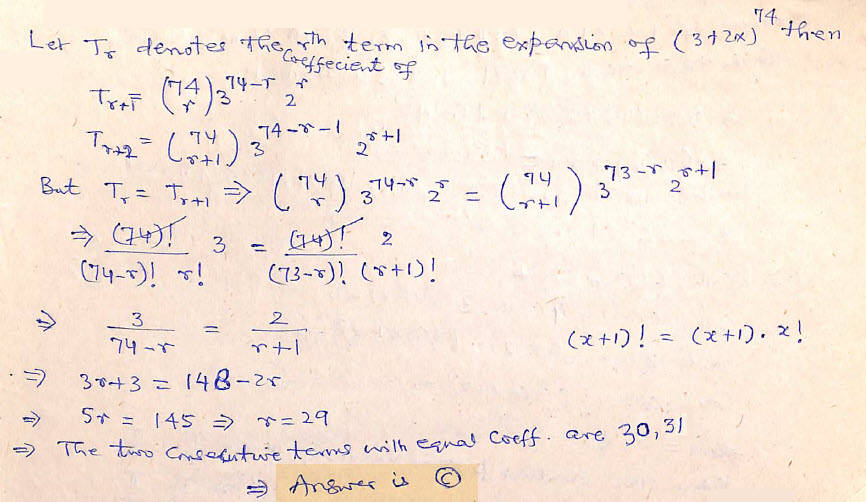 Let Tr denotes the rth term in the expansion of (3+2x)^74 then
Coeffecient of
Tr+1 = (74 r) 3^74-r 2^r
Tr+2 = (74 r+1) 3^74-r-1 2^r+1
But Tr = Tr+1 ⇒ (74 r) 3^74-r 2^r = (74 r+1) 3^73-r 2^r+1
⇒ (74)! / (74-r)! r! 3 = (74)! / (73-r)! (r+1)! 2
⇒ 3 / 74-r = 2 / r+1 (x+1)! = (x+1). x!
⇒ 3r+3 = 148-2r
⇒ 5r = 145 ⇒ r=29
⇒ The two Consecutive terms with equal Coeff. are 30,31
⇒ Answer is Ⓒ